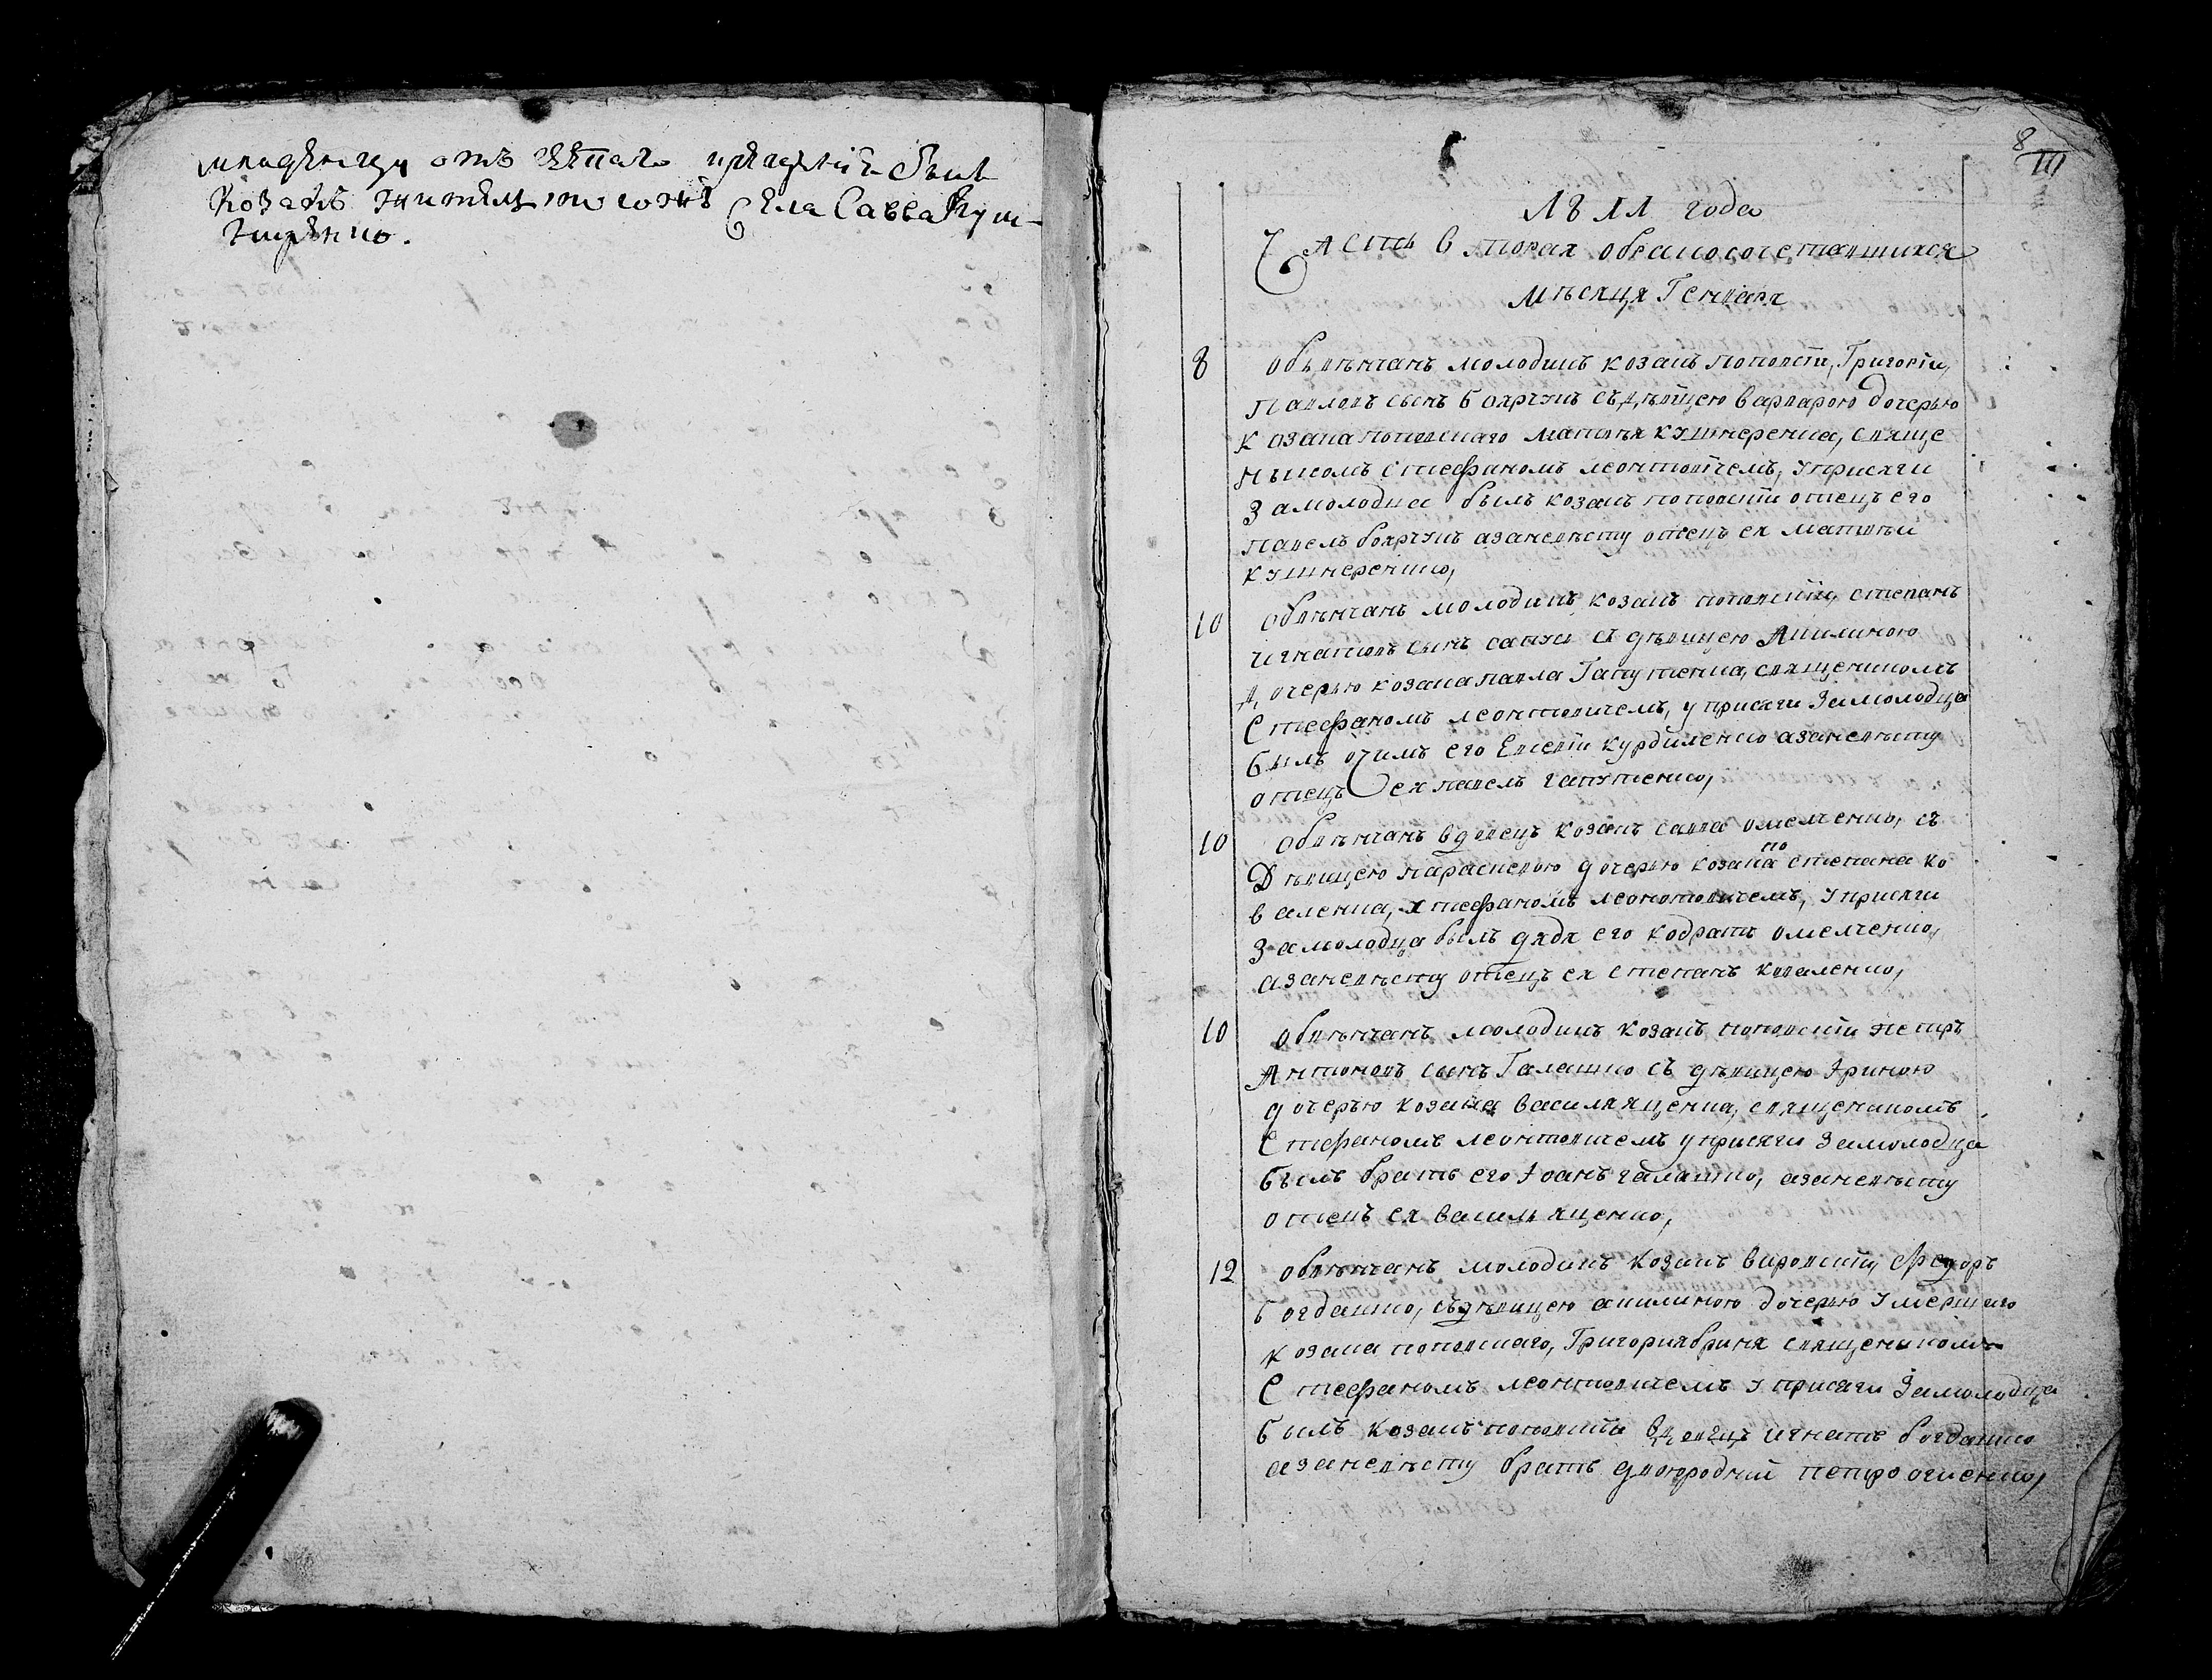 младенца отъ святаго крещенія былъ
козакъ житель того жъ села Савва Куш-
неренко.
8
111
года
Часть вторая о бракосочетавшихся
мѣсяця Генваря
8 Обвѣнчанъ молодикъ козакъ поповскій, Григорій,
Павловъ сынъ Бояркунъ съ дѣвицею варварою дочерью
козака поповскаго матвѣя кушнеренка, свяще
никомъ стефаномъ леонтовичемъ, у присяги
За молодца былъ козакъ поповскій отецъ его
павелъ а за невѣсту отецъ ея матвѣй
кушнеренко,
10 Обвѣнчанъ молодикъ козакъ поповскій, степанъ
игнатовъ сынъ сапун съ дѣвицею Акилиною
дочерью козака павла Гапутенка, священикомъ
Стефаномъ леонтовичемъ, у присяги За молодца
былъ очимъ его Евсевій курдиленко а за невѣсту
отецъ ея павелъ гапутенко,
10 Обвѣнчанъ вдовецъ козакъ савва омелченко, съ
Дѣвицею параскевою дочерью козака по степана ко
валенка, стефаномъ леонтовичемъ, у присяги
За молодца былъ дядя его кодратъ омелченко,
а за невѣсту отецъ ея степанъ коваленко,
10 Обвѣнчанъ молодикъ козакъ поповскій петръ
Антоновъ сынъ Галашко съ дѣвицею Ириною
дочерью козака василя яценка, священикомъ
Стефаномъ леонтовичемъ у присяги За молодца
былъ братъ его Іоанъ галашко, а за невѣсту
отецъ ея василь яценко,
12 Обвѣнчанъ молодикъ козакъ вировскій, Федоръ
богдашко, съ дѣвицею акилиною дочерью умершаго
козака поповскаго, Григорія бриня священикомъ
Стефаномъ леонтовичемъ у присяги За молодца
былъ козакъ поповскій вдовецъ игнатъ богдашко
а за невѣсту братъ двоюродній петро огиенко,